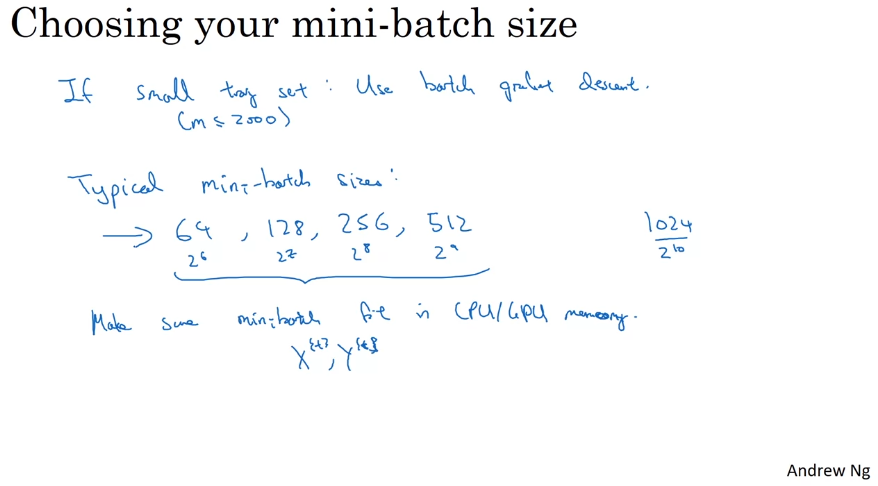 Choosing your mini-batch size
If small traing set : Use batch gradient descent.
(m ≤ 2000)
Typical mini-batch sizes:
→ 64, 128, 256, 512 1024
2⁶ 2⁷ 2⁸ 2⁹ 2¹⁰
Make sure minibatch fit in CPU/GPU memory.
X^{t}, Y^{t}
Andrew Ng